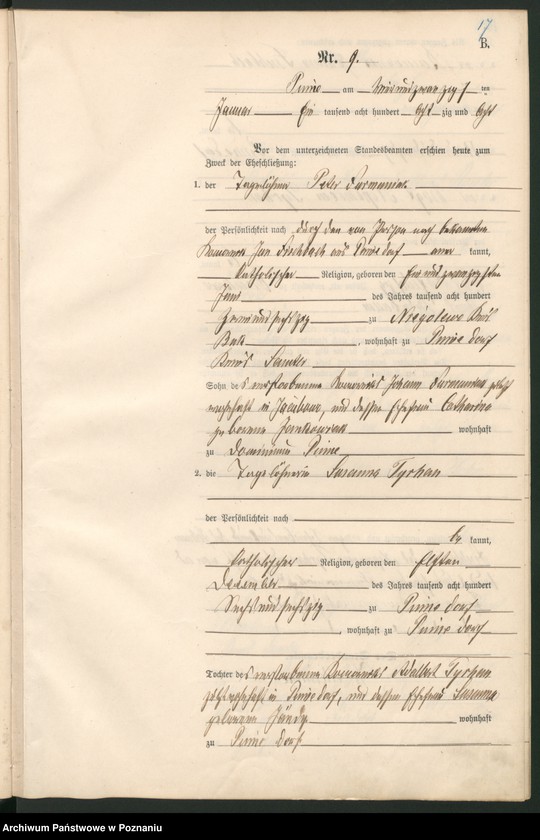 17
B.
Nr. 9.
Pinne am
Januar Ein tausend acht hundert acht zig und acht
Vor dem unterzeichneten Standesbeamten erschien heute zum
Zweck der Eheschließung:
1. der Tagelöhner Peter Furmaniak
der Persönlichkeit nach durch den von Person nach bekannten
Komornik Jan aus Pinne dorf aner kannt,
katholischer Religion, geboren den
des Jahres tausend acht hundert
zwei und sechs zig zu Niegolewo
Buk, wohnhaft zu Pinne dorf
Kreis Samter
Sohn des verstorbenen Komorniks Johann Furmaniak
in und dessen Ehefrau Catharina
geborene Jankowiak wohnhaft
zu Dominium Pinne
2. die Tagelöhnerin Susanna Tyrkan
der Persönlichkeit nach
be kannt,
katholischer Religion, geboren den Elften
Dezember des Jahres tausend acht hundert
Sechs und sechs zig zu Pinne dorf
, wohnhaft zu Pinne dorf
Tochter des verstorbenen Komorniks Adalbert Tyrkan
in Pinne dorf, und dessen Ehefrau Susanna
geborenen wohnhaft
zu Pinne dorf
Archiwum Państwowe w Poznaniu